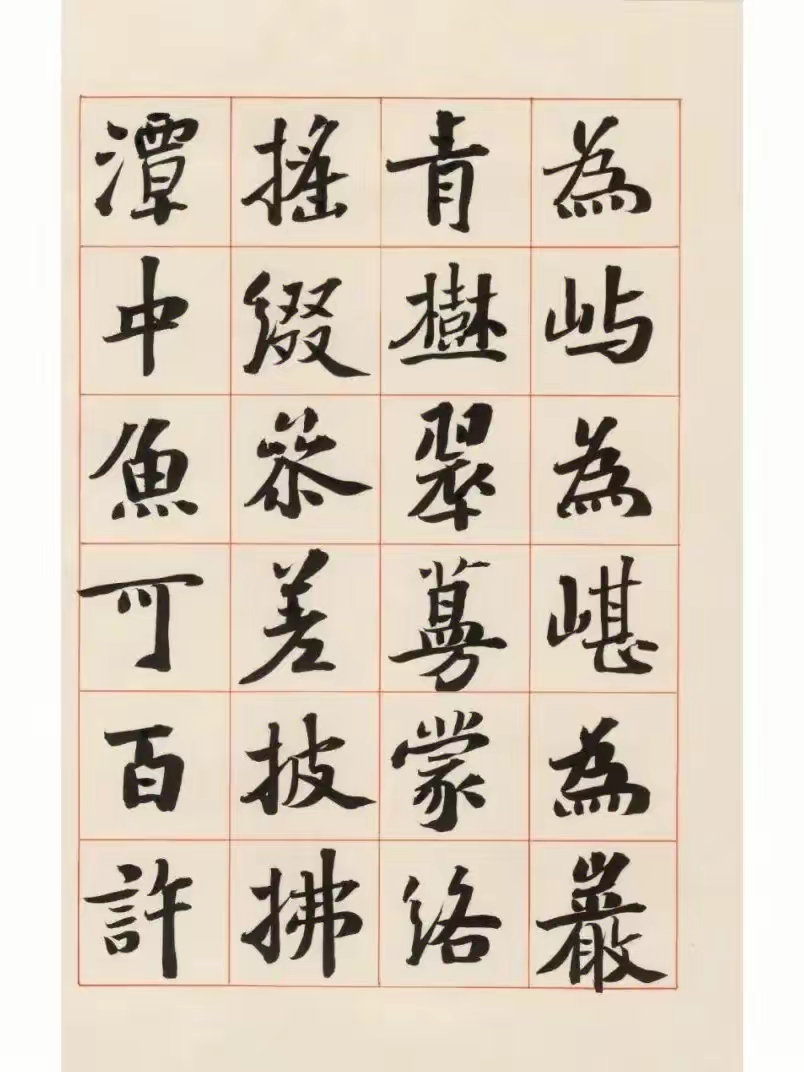 為嶼為嵁為巖
青樹翠蔓蒙絡
搖綴參差披拂
潭中魚可百許